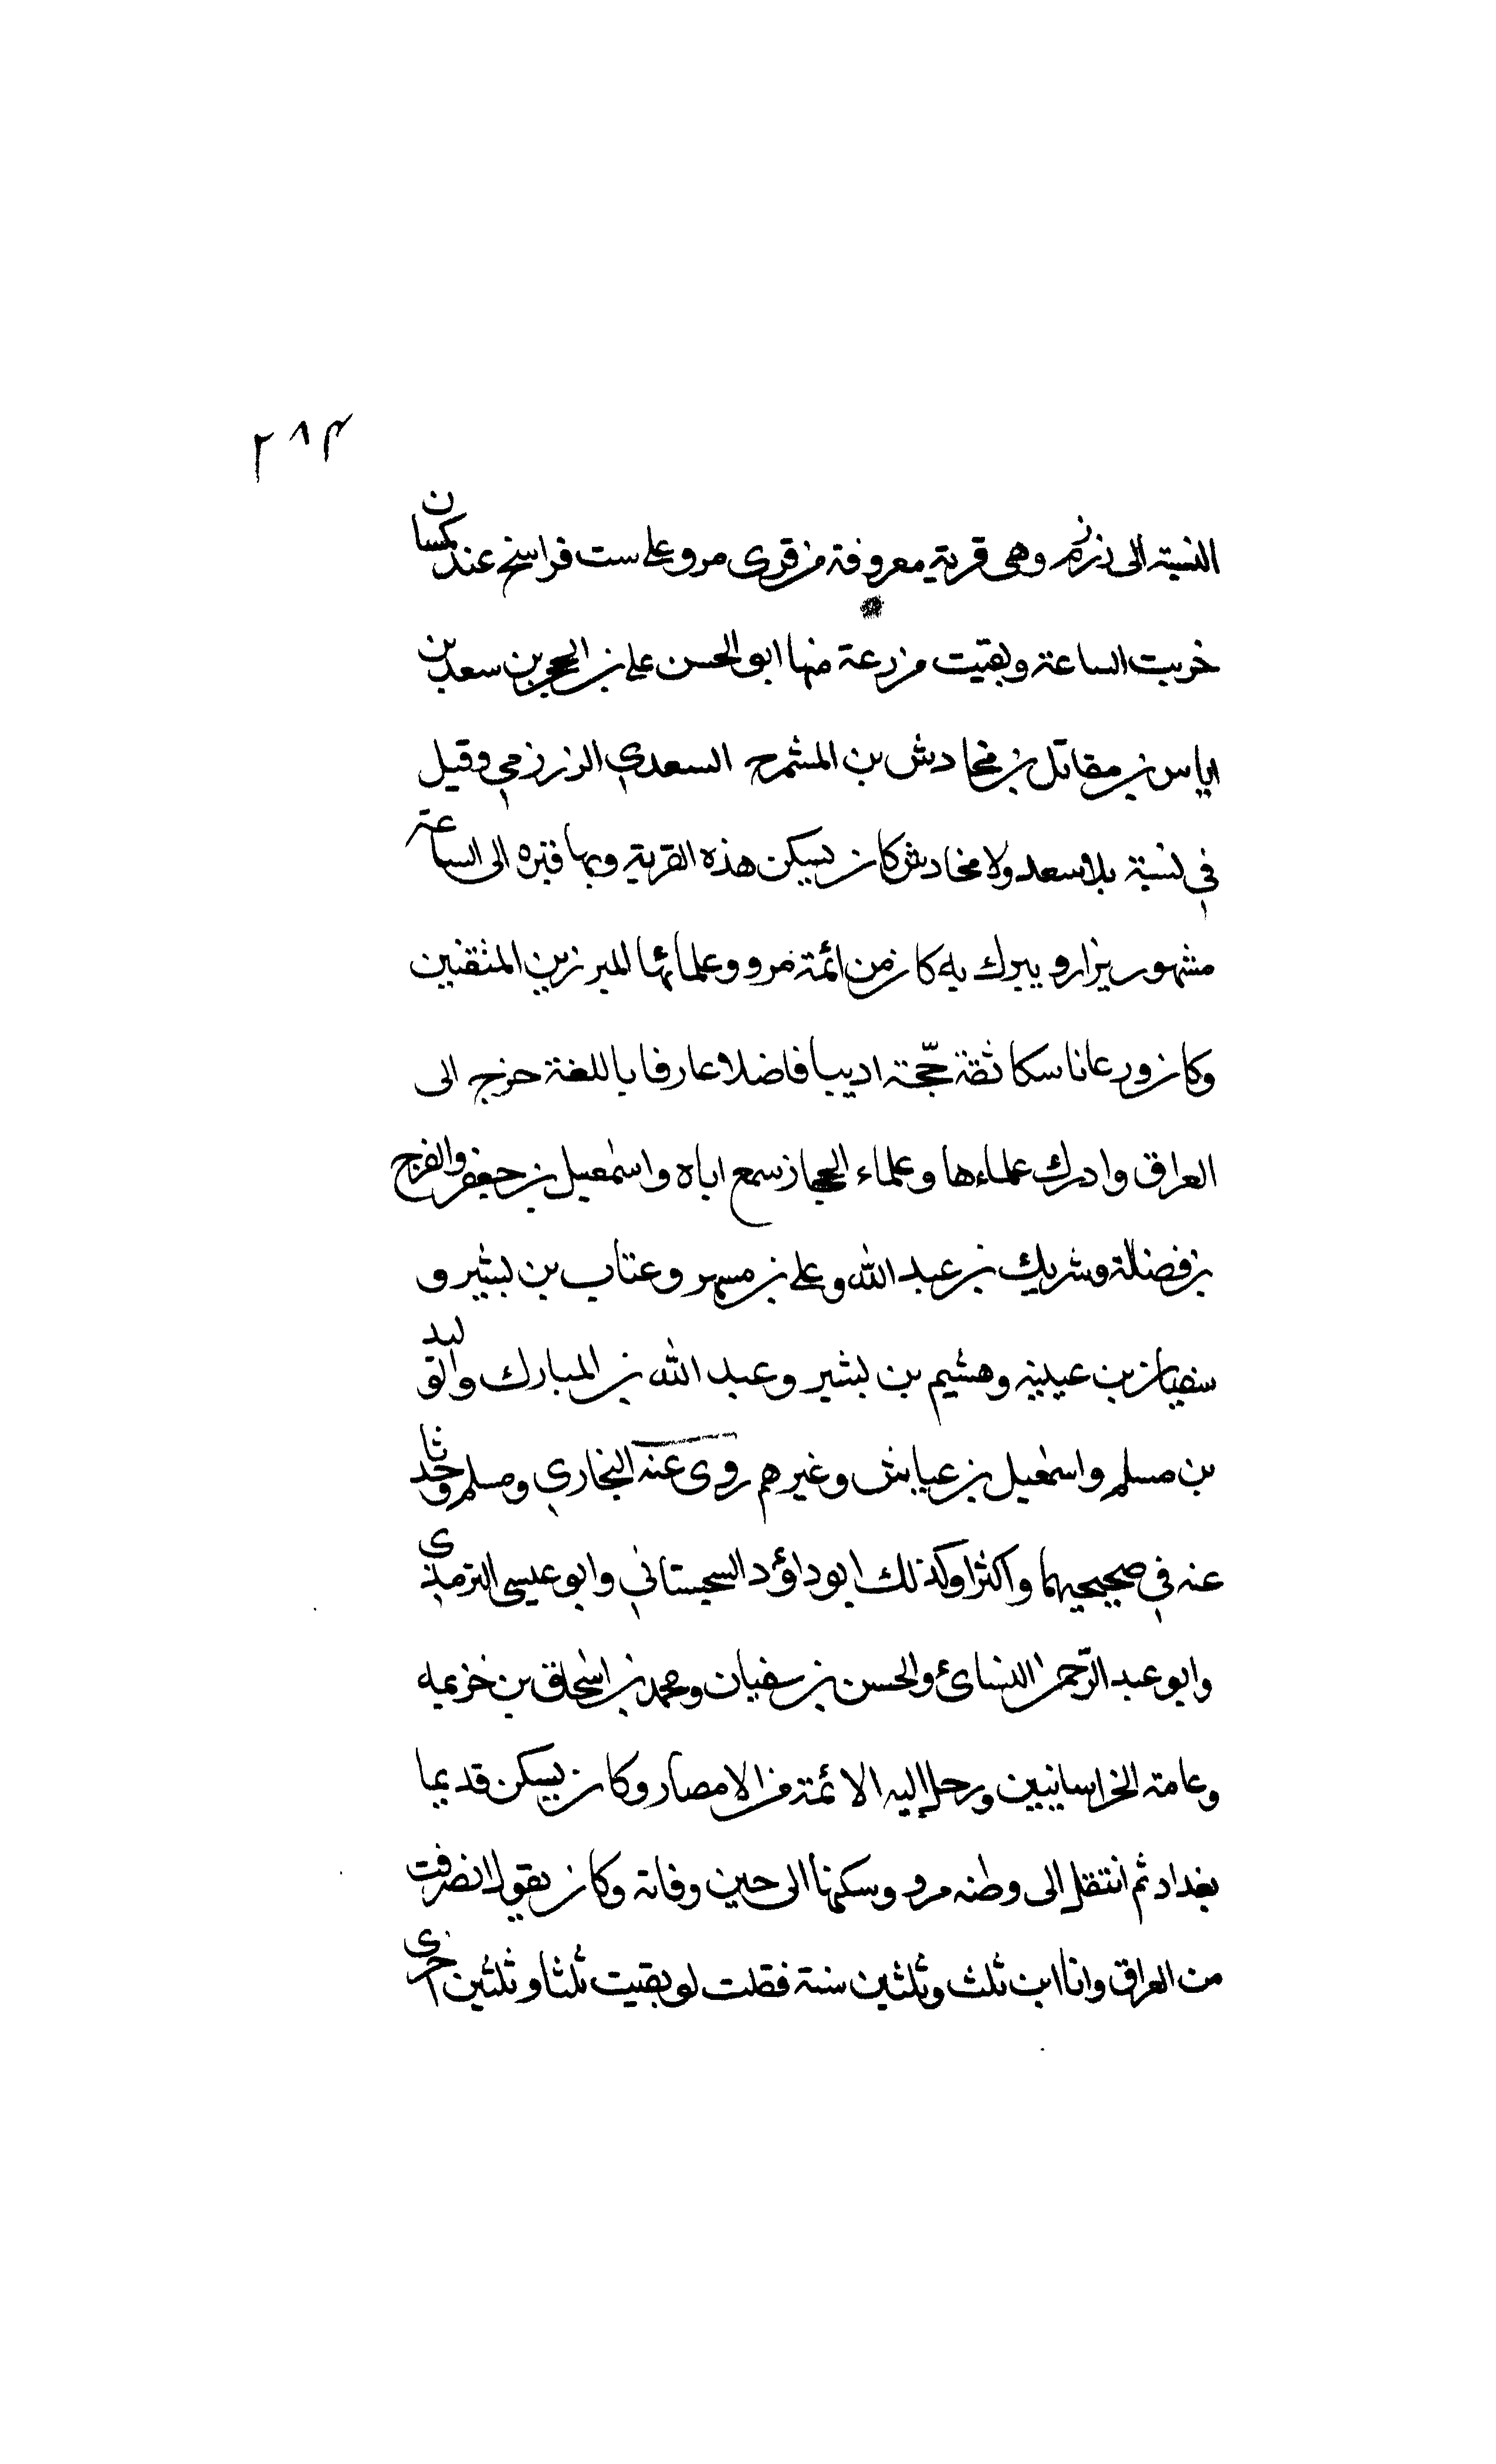 ٢٨٤
النسبة الى زرزم وهى قرية معروفة من قرى مرو على ست فراسخ عند كمسان
خربت الساعة وبقيت مزرعة منها ابو الحسن على بن الحجر بن سعد بن
اياس بن مقاتل بن مخادش بن المشمرج السعدي الزرزمي وقيل
في نسبة بلا سعد ولا مخادش كان يسكن هذه القرية وبها قبره الى الساعة
مشهور يزار ويبرك به كان من ائمة مرو وعلمائها المبرزين المتقنين
وكان ورعا ناسكا ثقة حجّة اديبا فاضلا عارفا باللغة خرج الى
العراق وادرك علماءها وعلماء الحجاز سمع اباه واسمعيل بن جعفر والفرج
بن فضالة وشريك بن عبد الله وعلى بن مسهر وعتاب بن بشير و
سفيان بن عيينه وهشيم بن بشير وعبد الله بن المبارك والوليد
بن مسلم واسمعيل بن عياش وغيرهم روى عنه البخاري ومسلم وحدثا
عنه في صحيحيهما واكثرا وكذلك ابو داؤد السجستاني وابو عيسى الترمذى
وابو عبد الرّحمن النسائ والحسن بن سفيان ومحمد بن اسحاق بن خزيمه
وعامة الخراسانيين ورحل إليه الائمة من الامصار وكان يسكن قديما
بغداد ثم انتقل الى وطنه مرو وسكنها الى حين وفاته وكان يقول انصرفت
من العراق وانا ابن ثلث وثلثين سنة فقلت لو بقيت ثلثا وثلثين اخرى